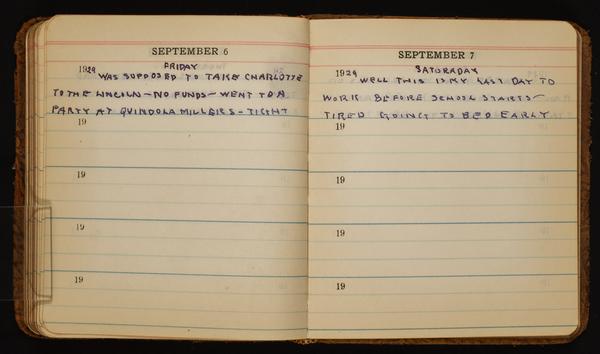 SEPTEMBER 6
FRIDAY
1929 WAS SUPPOSED TO TAKE CHARLOTTE
TO THE LINCOLN - NO FUNDS - WENT TO A
PARTY AT QUINDOLA MILLERS - TIGHT
19
19
19
19
SEPTEMBER 7
SATURADAY
1929 WELL THIS IS MY LAST DAY TO
WORK BEFORE SCHOOL STARTS -
TIRED GOING TO BED EARLY
19
19
19
19